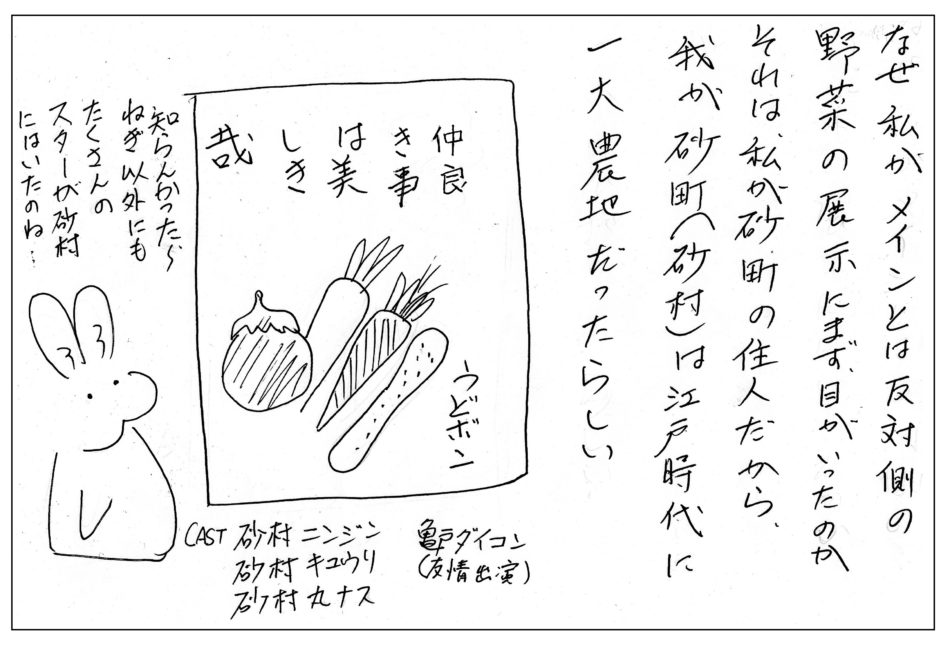 なぜ私がメインとは反対側の
野菜の展示にまず、目がいったのか
それは、私が砂町の住人だから、
我が砂町(砂村)は江戸時代に
一大農地だったらしい
仲良
き事
は美
しき
哉
うどボン
知らんかった〜
ねぎ以外にも
たくさんの
スターが砂村
にはいたのね…
CAST 砂村ニンジン
砂村キュウリ
砂村丸ナス
亀戸ダイコン
(友情出演)